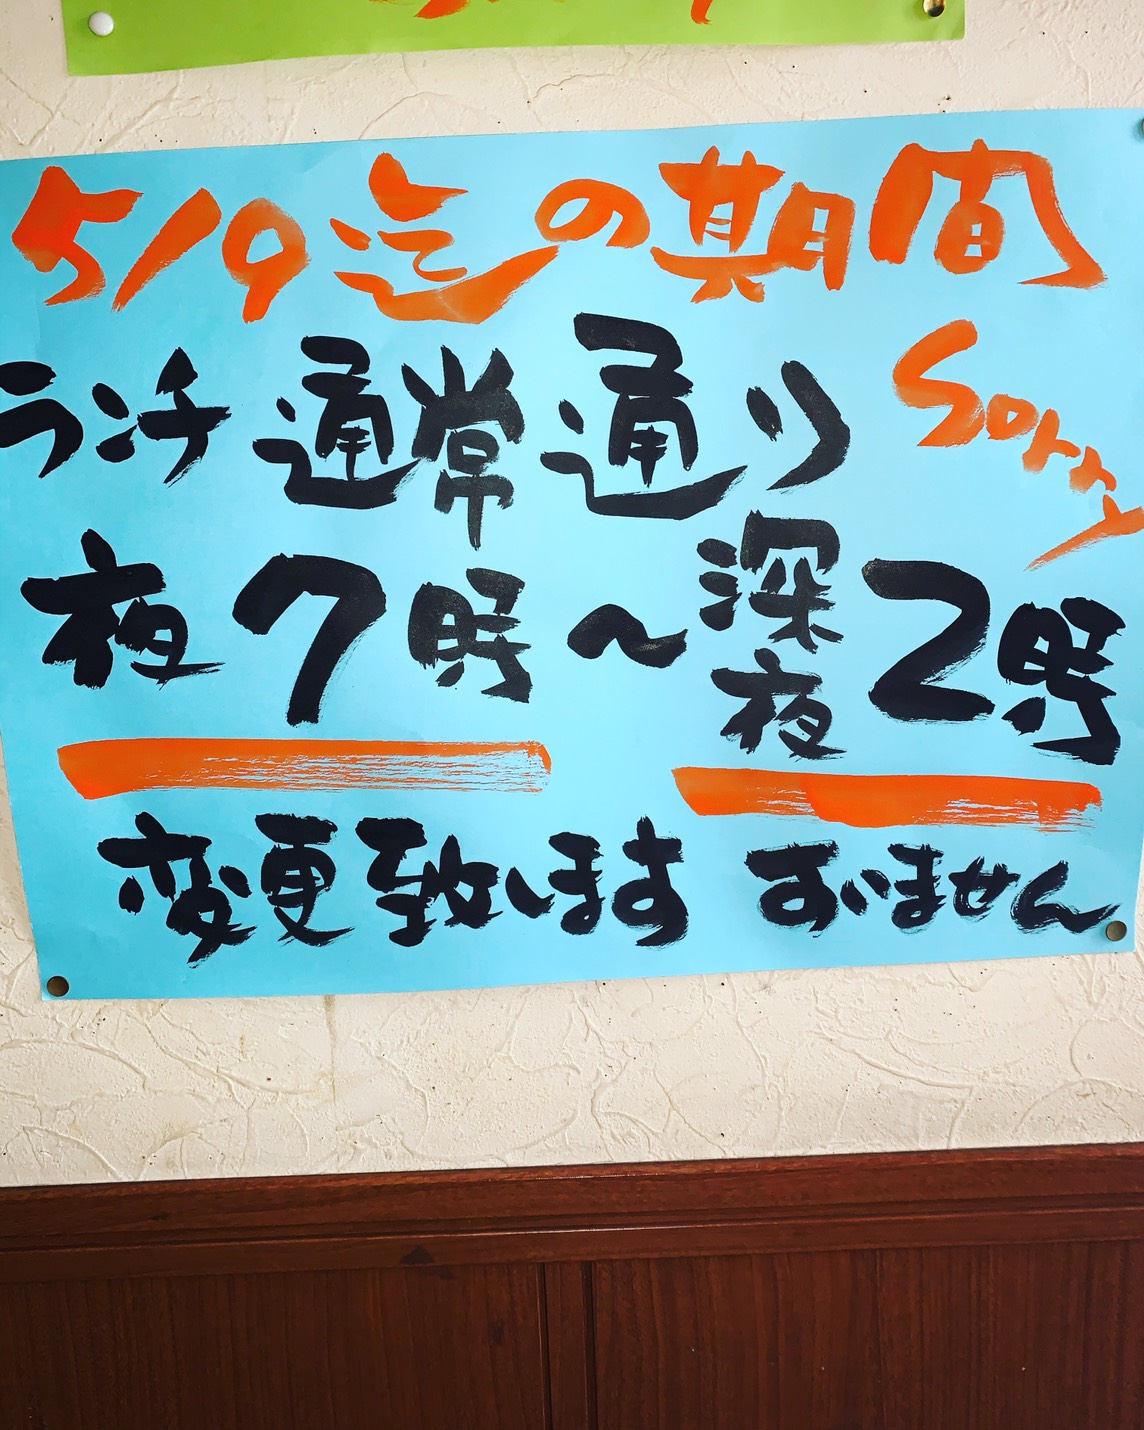 5/9迄の期間
ランチ 通常通り
Sorry
夜7時～深夜2時
変更致します すいません